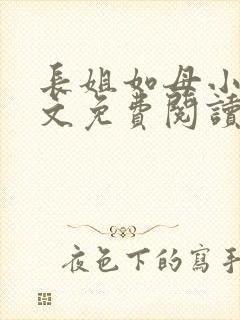 長姐如母小
文免費閱讀
夜色下的寫手